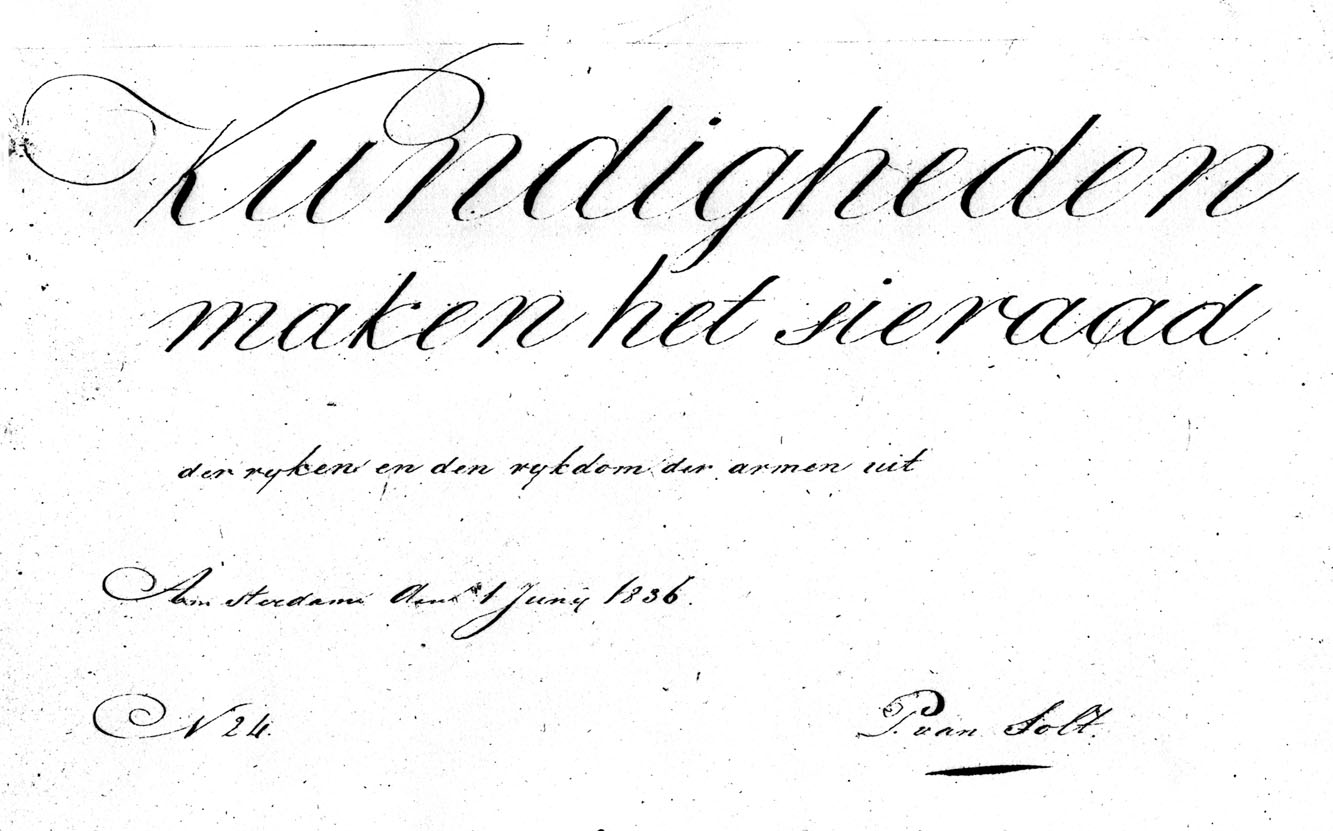 Kundigheden
maken het sieraad
der ryken en den rykdom der armen uit
Amsterdam den 1 Juny 1836.
N 24.
P. van Solt.